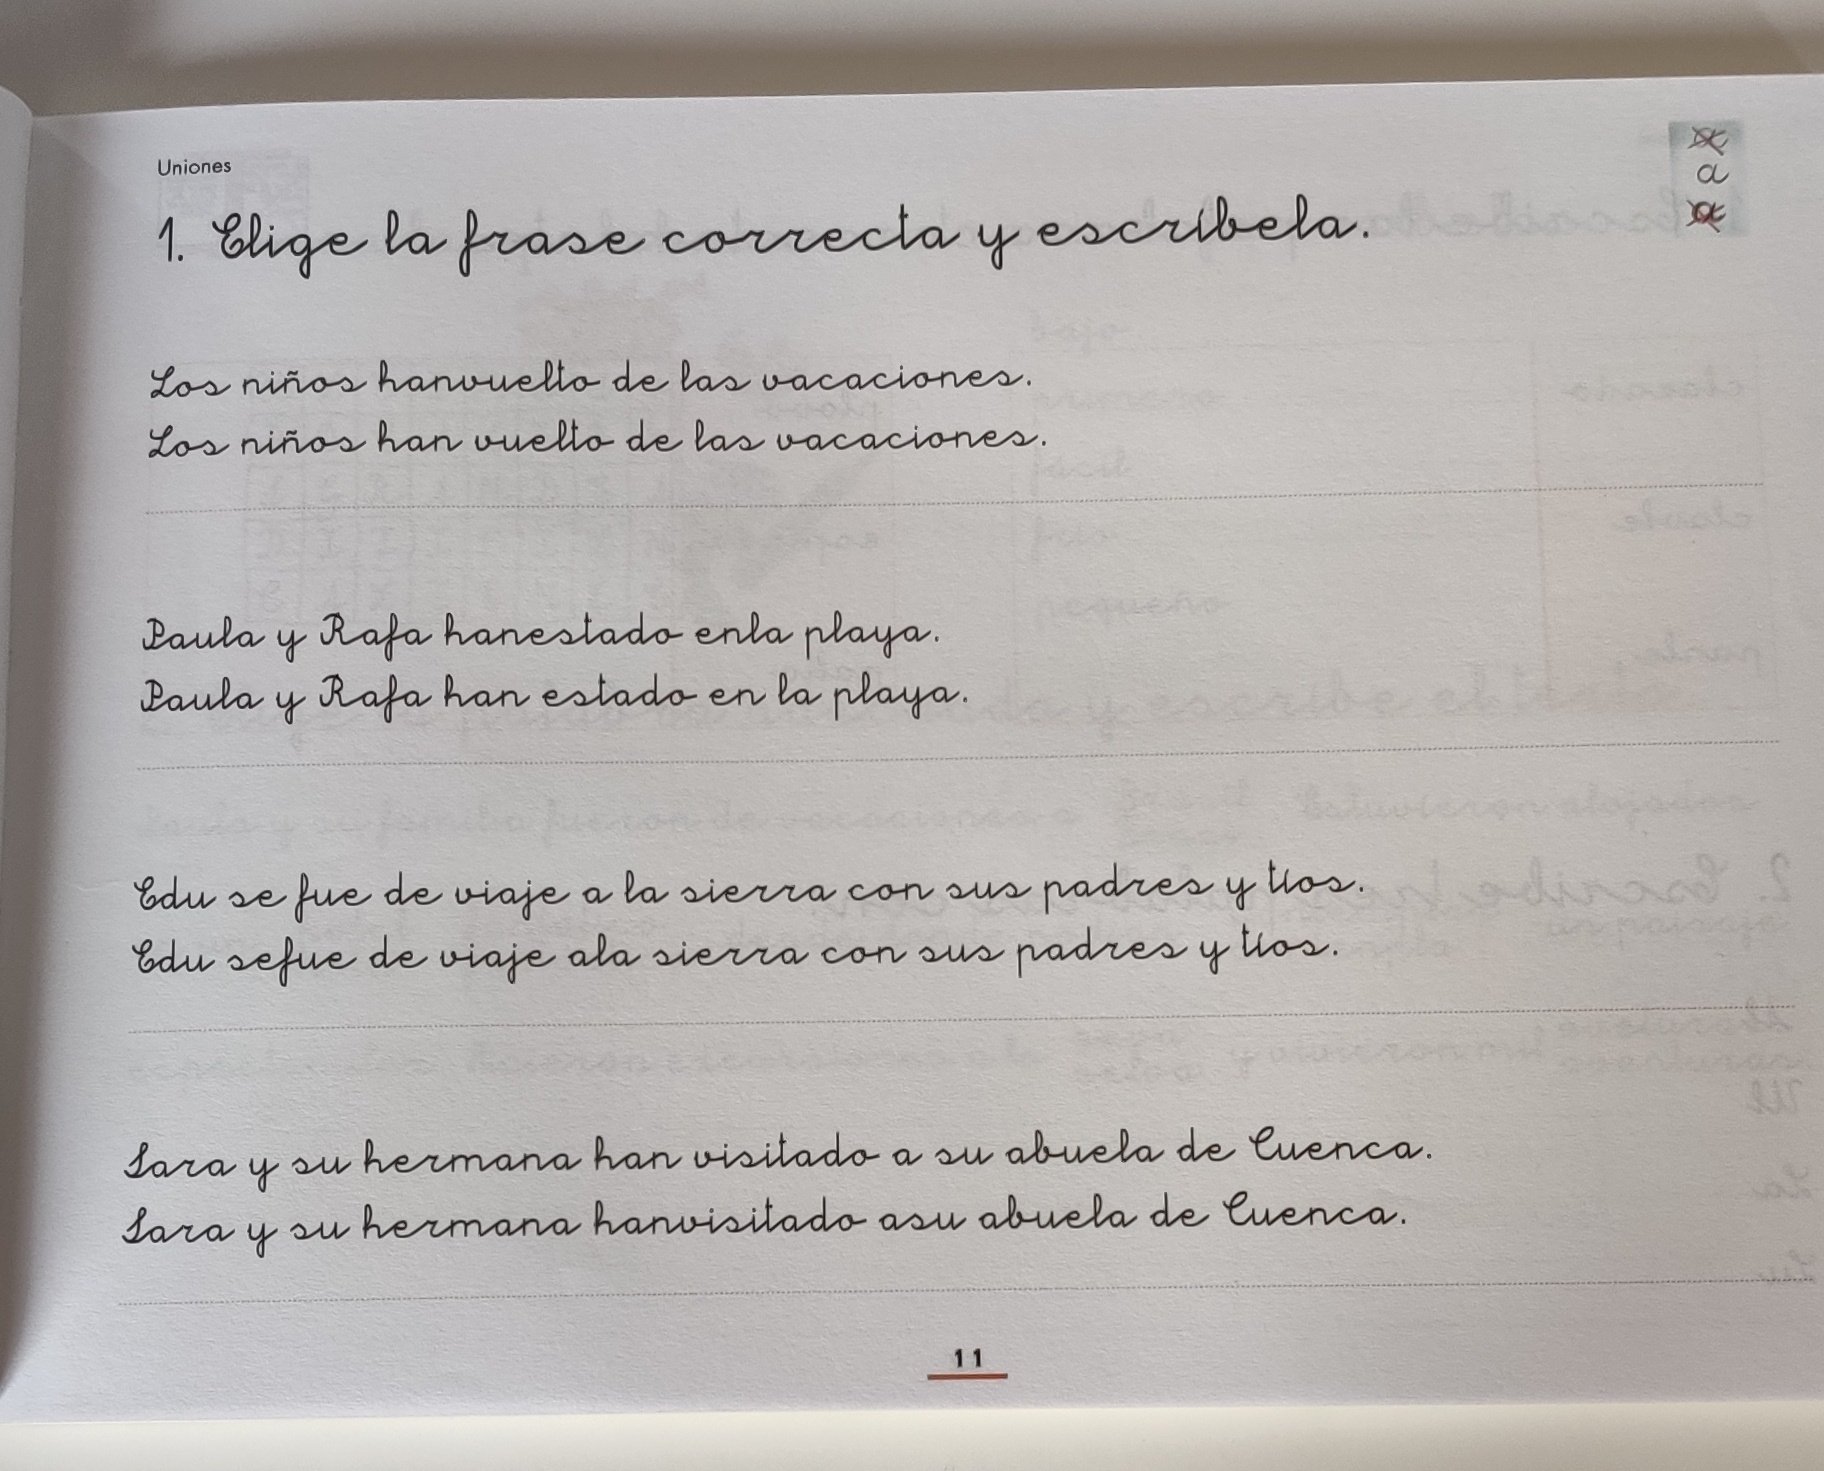 Uniones
a
a
a
1. Elige la frase correcta y escríbela.
Los niños hanvuelto de las vacaciones.
Los niños han vuelto de las vacaciones.
Paula y Rafa hanestado enla playa.
Paula y Rafa han estado en la playa.
Edu se fue de viaje a la sierra con sus padres y tíos.
Edu sefue de viaje ala sierra con sus padres y tíos.
Sara y su hermana han visitado a su abuela de Cuenca.
Sara y su hermana hanvisitado asu abuela de Cuenca.
11